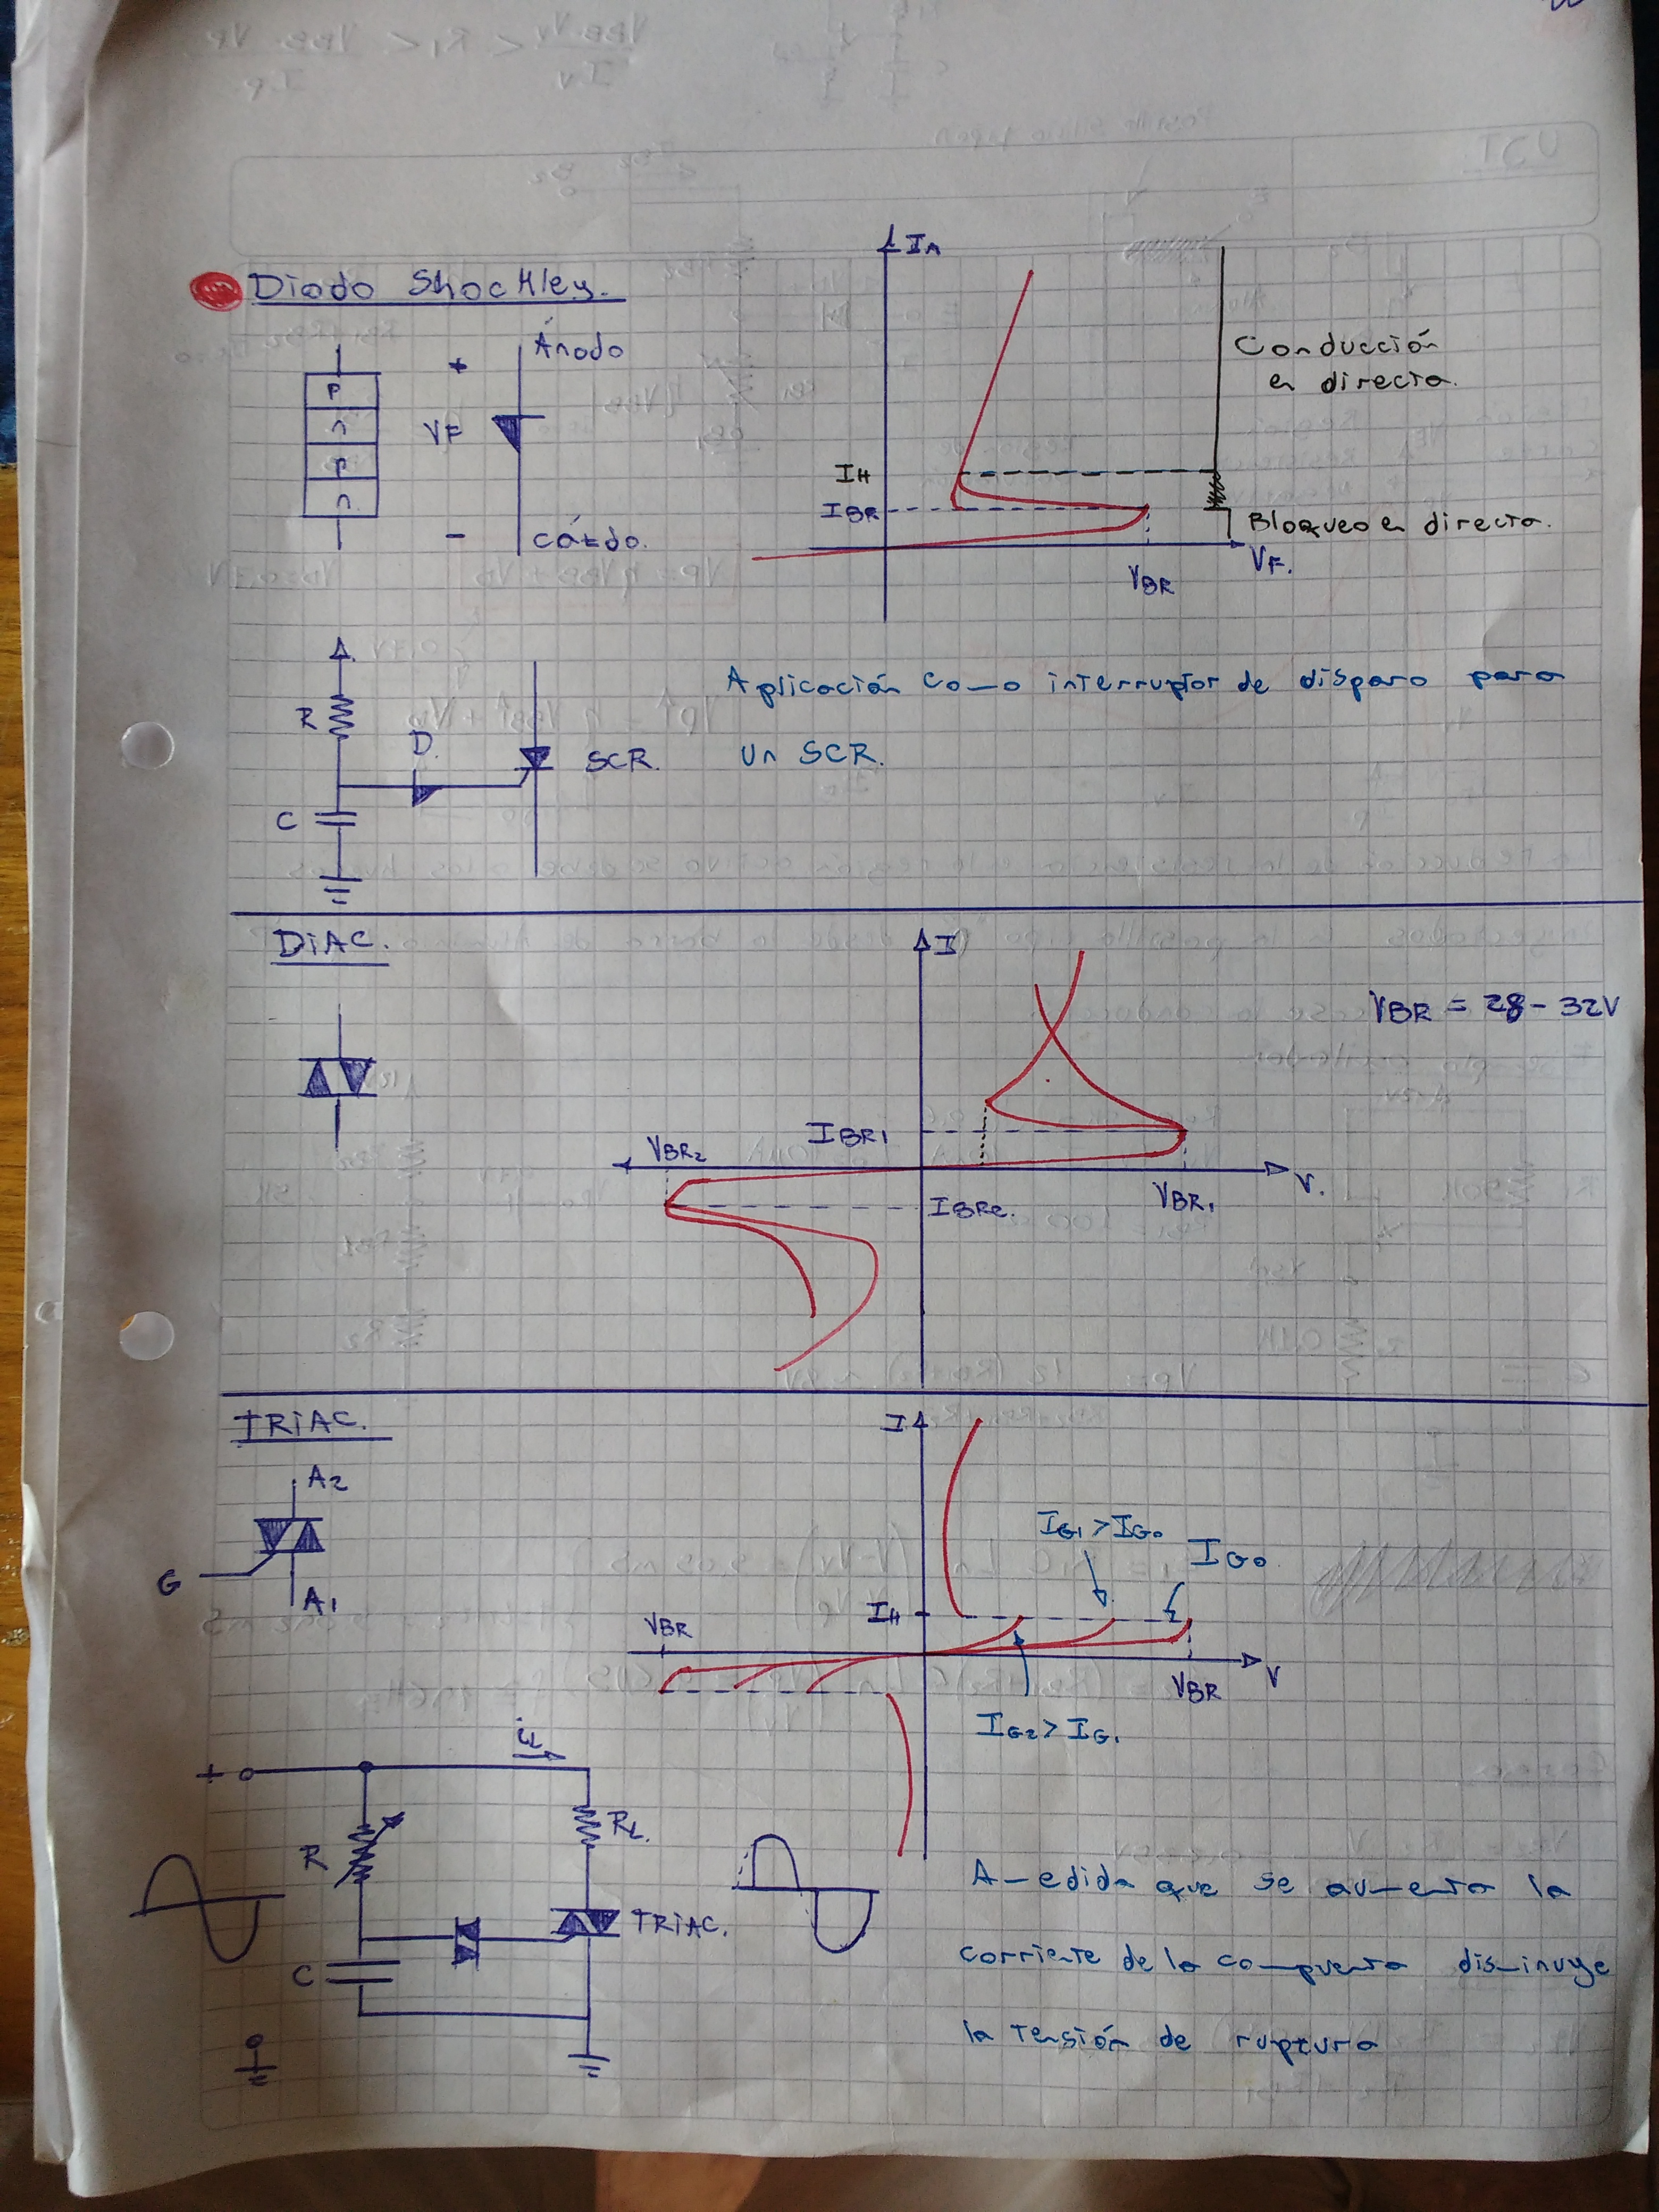 Diodo Shockley.
P
n
P
n
+
VF
-
Ánodo
Cátdo.
IA
IH
IBR
VBR
VF.
Conducción
en directa.
Bloqueo en directa.
R
C
D.
SCR.
Aplicación como interruptor de disparo para
un SCR.
DIAC.
I
VBR = 28 - 32V
IBR1
VBR2
IBR2.
VBR1
V.
TRIAC.
A2
G
A1
I
IG1 > IG0
IG0
IH
VBR
VBR
V
IG2 > IG1
+
iL
R
RL.
TRIAC.
C
A medida que se aumenta la
corriente de la compuerta disminuye
la tensión de ruptura